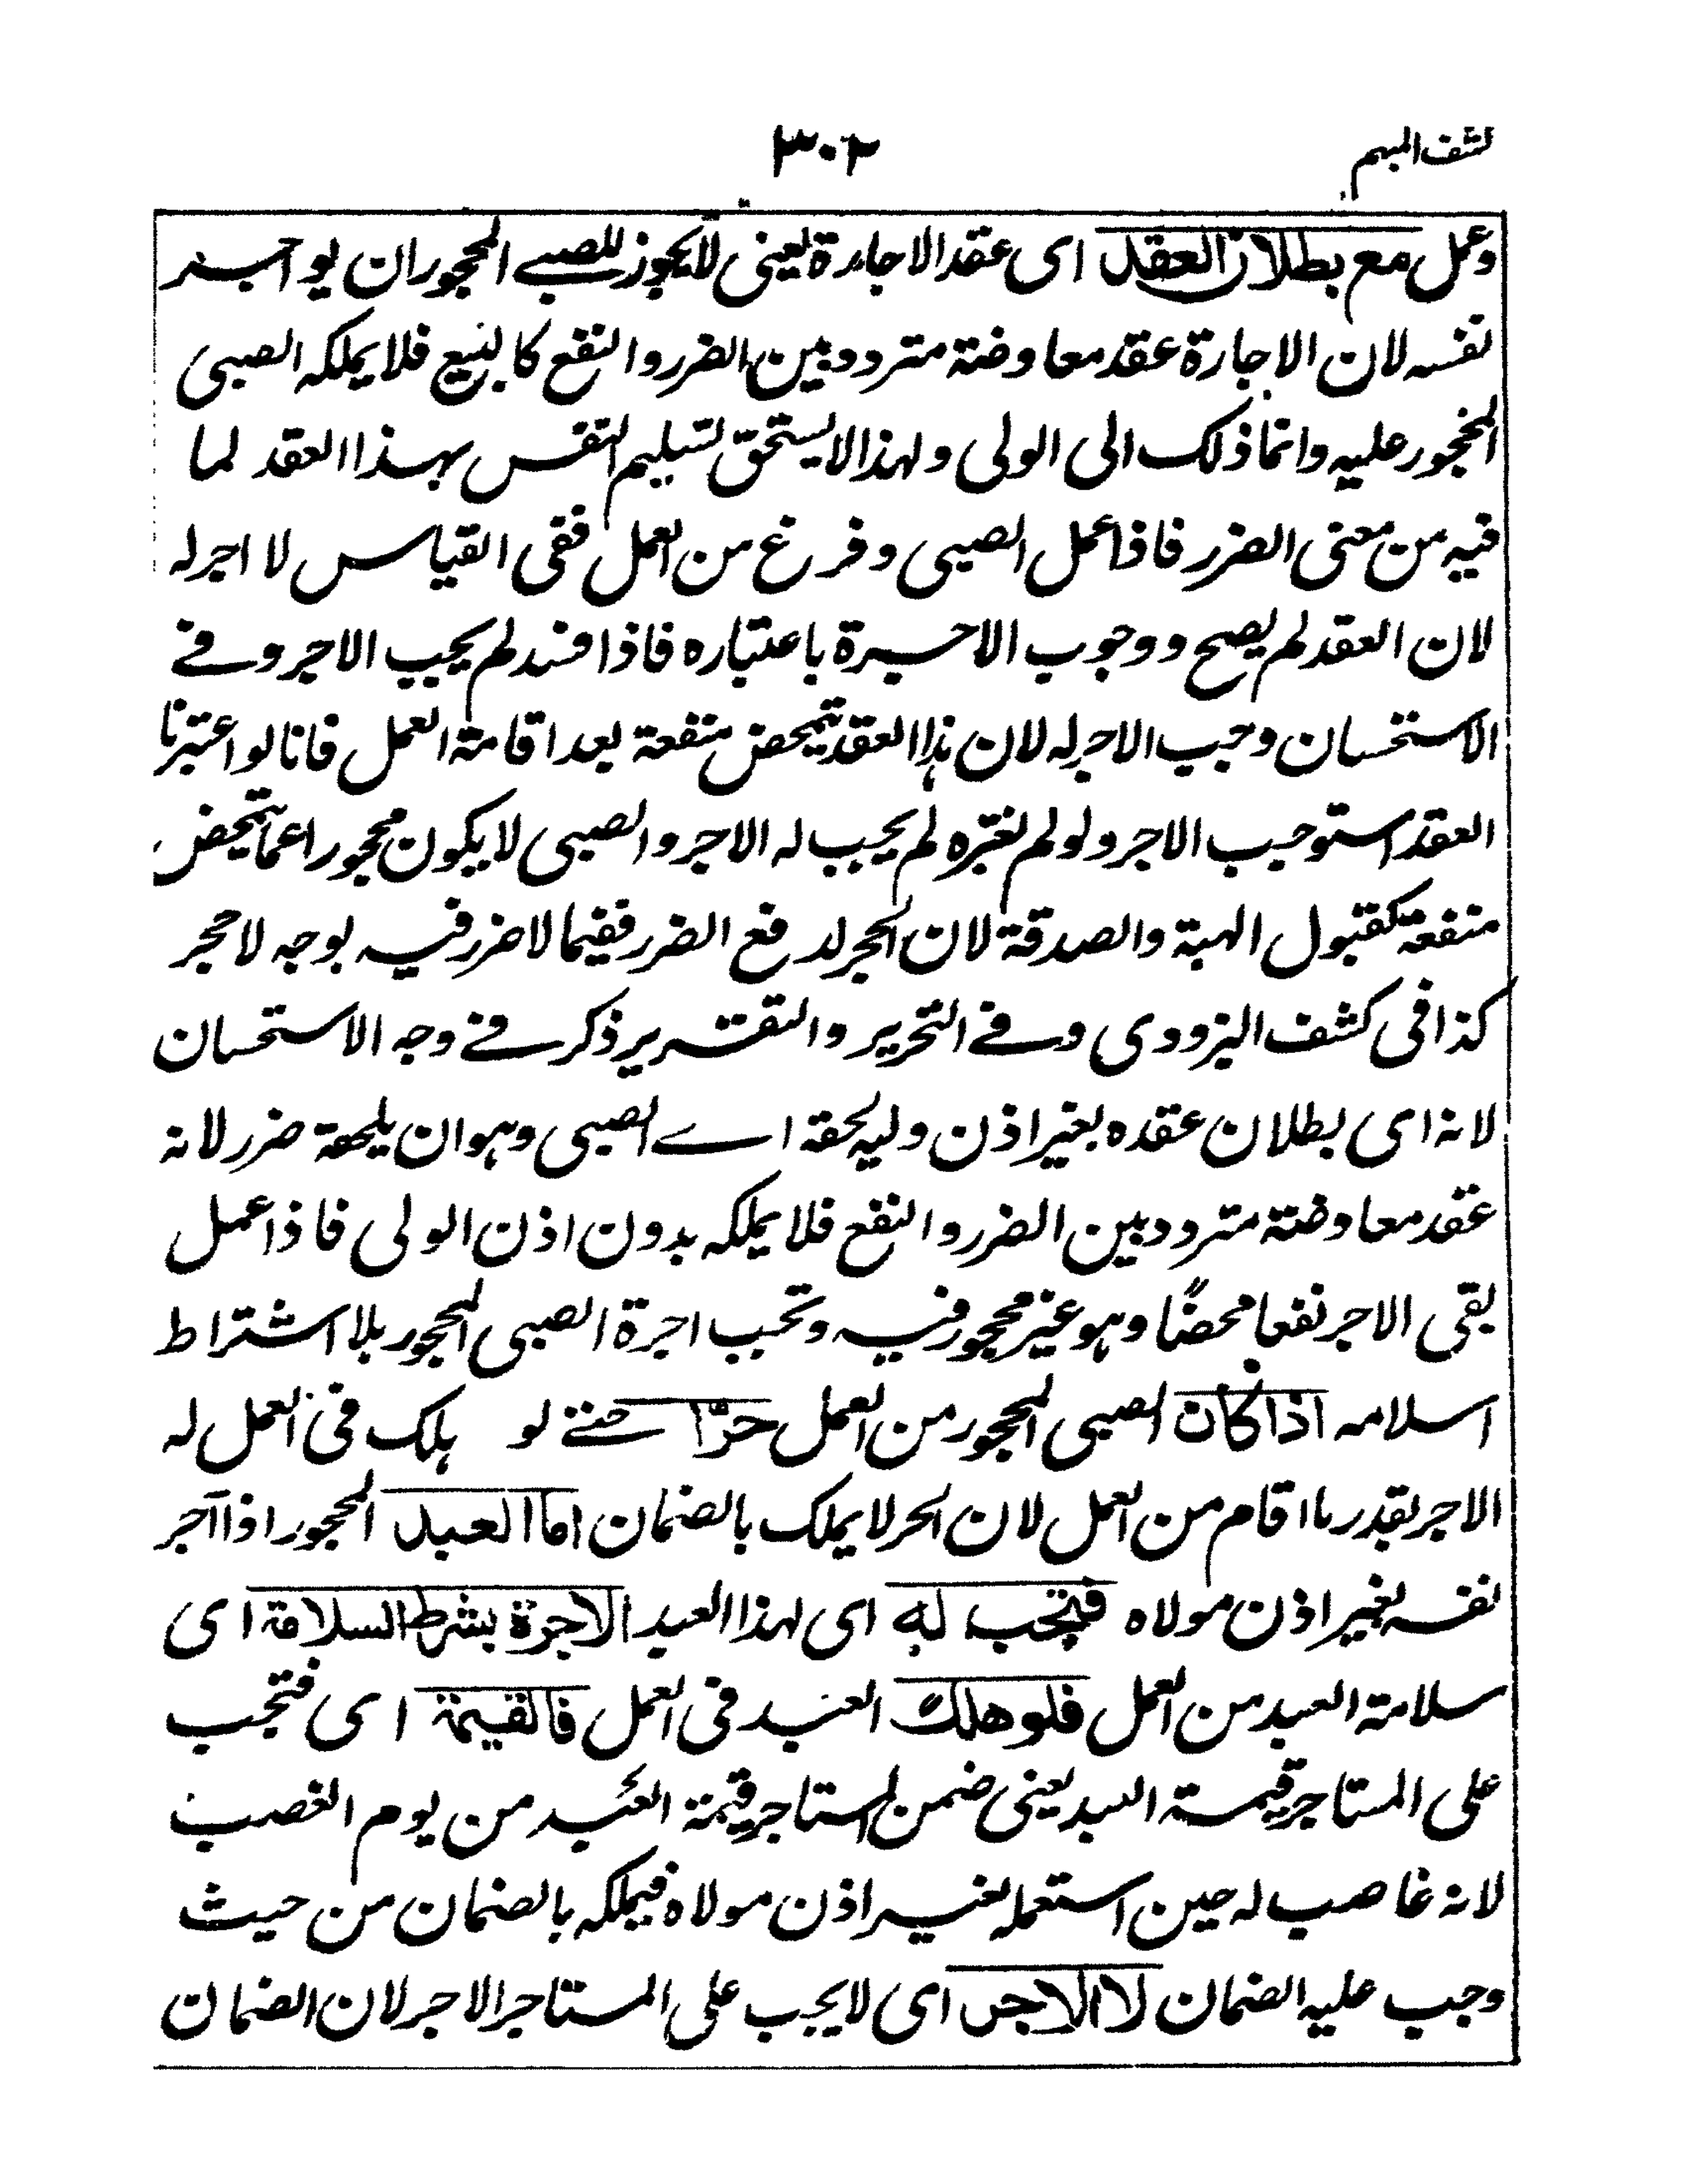 كشف المبهم
٣٠٢
وعمل مع بطلان العقد اى عقد الاجارة يعنى لا يجوز للصبے المحجور ان يواجر
نفسه لان الاجارة عقد معاوضة متردد بين الضرر والنفع كالبيع فلا يملكه الصبى
المحجور عليه وانما ذلك الى الولى ولهذا لا يستحق تسليم النفس بهذا العقد لما
فيه من معنى الضرر فاذا عمل الصبى وفرغ من العمل ففى القياس لا اجر له
لان العقد لم يصح ووجوب الاجرة باعتباره فاذا فسد لم يجب الاجر وفے
الاستحسان وجب الاجر له لان هذا العقد تمحض منفعة بعد اقامة العمل فانا لو اعتبرنا
العقد استوجب الاجر ولو لم نعتبره لم يجب له الاجر والصبى لا يكون محجورا عما يتمحض
منفعة كقبول الهبة والصدقة لان الحجر لدفع الضرر ففيما لا ضرر فيه بوجه لا حجر
كذا فى كشف البزدوى وفے التحرير والتقرير ذكر فے وجه الاستحسان
لانه اى بطلان عقده بغير اذن وليه لحقه اے الصبى وهو ان يلحقه ضرر لانه
عقد معاوضة متردد بين الضرر والنفع فلا يملكه بدون اذن الولى فاذا عمل
بقى الاجر نفعا محضًا وهو غير محجور فيه وتجب اجرة الصبى المحجور بلا اشتراط
اسلامه اذا كان الصبى المحجور من العمل حرّا حتے لو هلك فى العمل له
الاجر بقدر ما اقام من العمل لان الحر لا يملك بالضمان اما العبد المحجور اذا آجر
نفسه بغير اذن مولاه فتجب له اى لهذا العبد الاجرة بشرط السلامة اى
سلامة العبد من العمل فلو هلك العبد فى العمل فالقيمة اى فتجب
على المستاجر قيمة العبد يعنى ضمن المستاجر قيمة العبد من يوم الغصب
لانه غاصب له حين استعمله بغير اذن مولاه فيملكه بالضمان من حيث
وجب عليه الضمان لا الاجر اى لا يجب على المستاجر الاجر لان الضمان